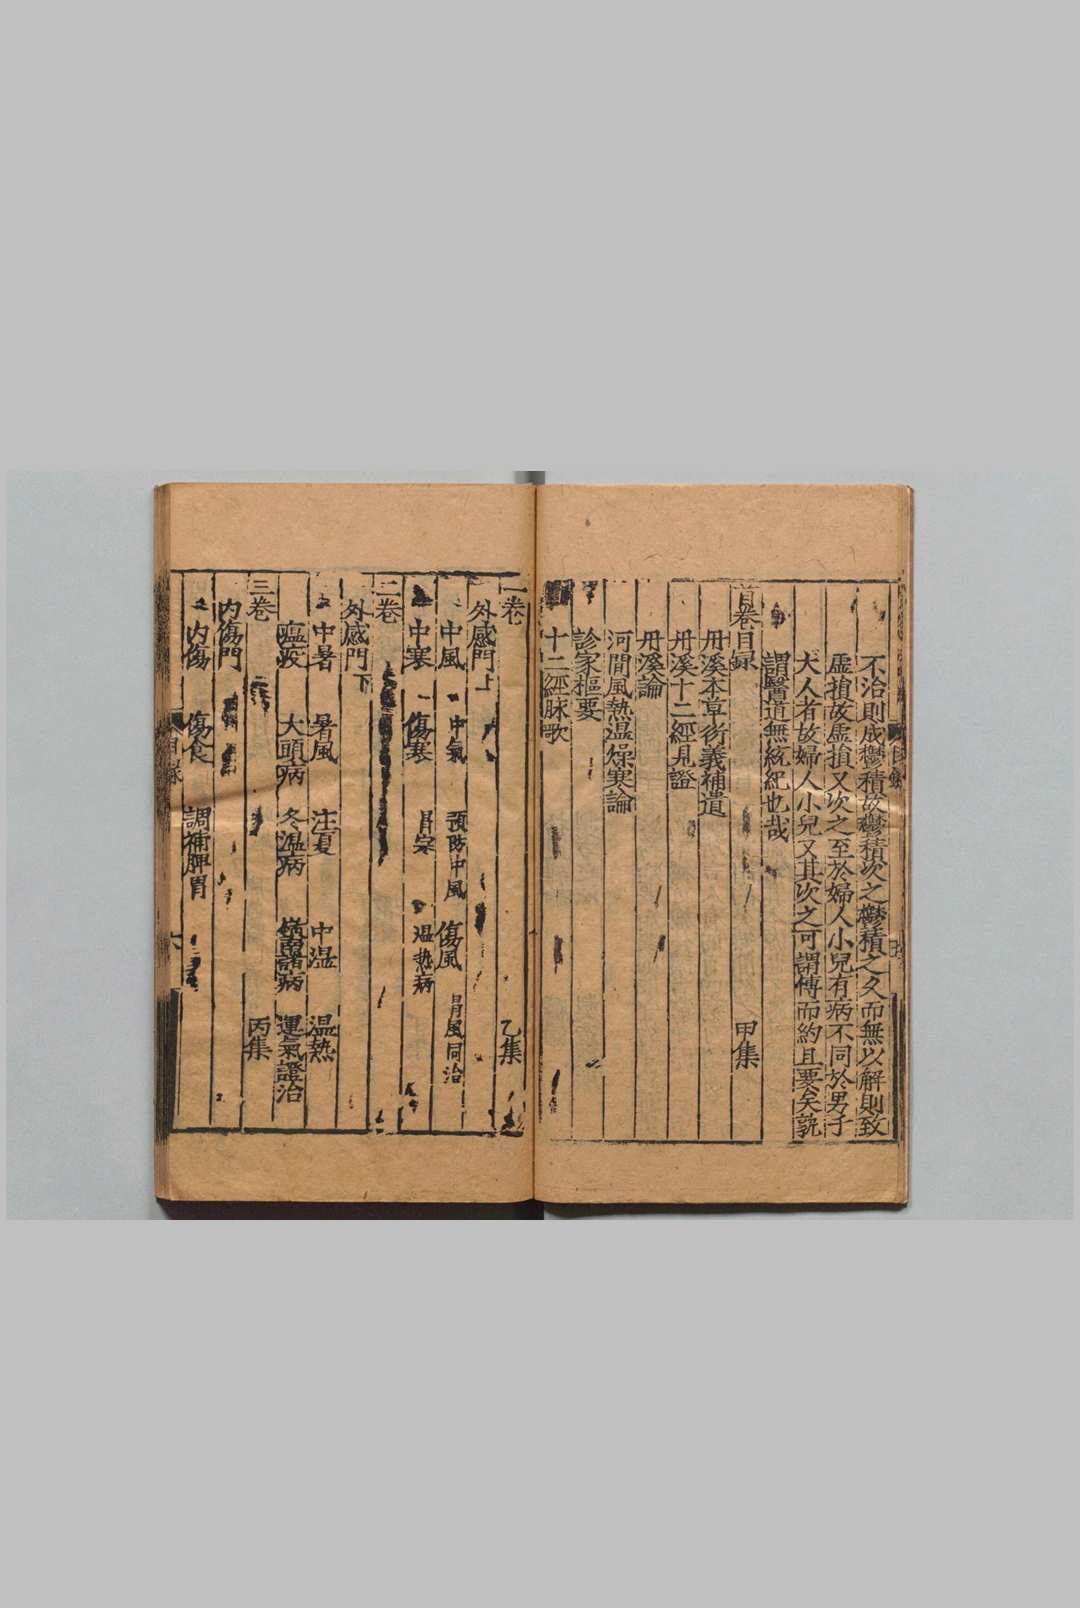 不治則成鬱積故鬱積次之鬱積之久而無以解則致
虛損故虛損又次之至於婦人小兒有病不同於男子
大人者故婦人小兒又其次之可謂傳而約且要矣孰
謂醫道無統紀也哉
首卷目録 甲集
丹溪本草衍義補遺
丹溪十二經見證
丹溪論
河間風熱温燥寒論
診家樞要
十二經脉歌
一卷 乙集
外感門上
中風 中氣 預防中風 傷風 冒風同治
中寒 傷寒 冒寒 温熱病
二卷
外感門下
中暑 暑風 注夏 中湿 温熱
瘟疫 大頭病 冬温病 嶺南諸病 運氣證治
三卷 丙集
内傷門
内傷 傷食 調補脾胃
目録